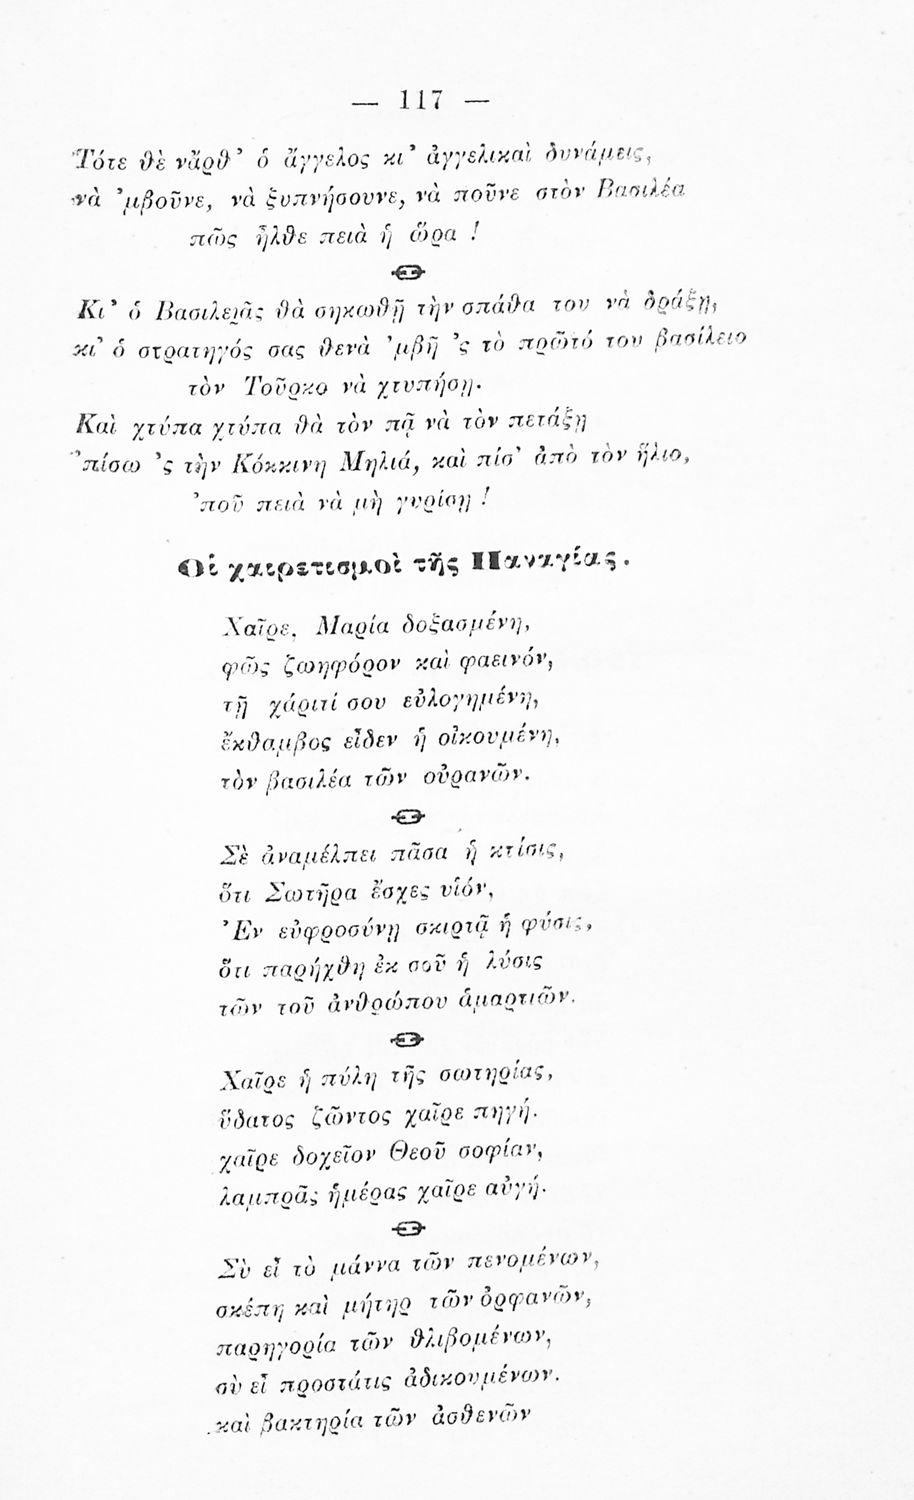 — 117 —
Τότε θὲ νἄρθ᾽ ὁ ἄγγελος κι᾽ ἀγγελικαὶ δυνάμεις,
νὰ ᾽μβοῦνε, νὰ ξυπνήσουνε, νὰ ποῦνε στὸν Βασιλέα
πῶς ἦλθε πειὰ ἡ ὥρα !
Κι᾽ ὁ Βασιλειᾶς θὰ σηκωθῇ τὴν σπάθα του νὰ δράξῃ,
κι᾽ ὁ στρατηγός σας θενὰ ᾽μβῇ ᾽ς τὸ πρῶτό του βασίλειο
τὸν Τοῦρκο νὰ χτυπήσῃ.
Καὶ χτύπα χτύπα θὰ τὸν πᾷ νὰ τὸν πετάξῃ
᾽πίσω ᾽ς τὴν Κόκκινη Μηλιά, καὶ πίσ᾽ ἀπὸ τὸν ἥλιο,
᾽ποῦ πειὰ νὰ μὴ γυρίσῃ !
Οἱ χαιρετισμοὶ τῆς Παναγίας.
Χαῖρε, Μαρία δοξασμένη,
φῶς ζωηφόρον καὶ φαεινόν,
τῇ χάριτί σου εὐλογημένη,
ἔκθαμβος εἶδεν ἡ οἰκουμένη,
τὸν βασιλέα τῶν οὐρανῶν.
Σὲ ἀναμέλπει πᾶσα ἡ κτίσις,
ὅτι Σωτῆρα ἔσχες υἱόν,
᾽Εν εὐφροσύνῃ σκιρτᾷ ἡ φύσις,
ὅτι παρήχθη ἐκ σοῦ ἡ λύσις
τῶν τοῦ ἀνθρώπου ἁμαρτιῶν.
Χαῖρε ἡ πύλη τῆς σωτηρίας,
ὕδατος ζῶντος χαῖρε πηγή.
χαῖρε δοχεῖον Θεοῦ σοφίαν,
λαμπρᾶς ἡμέρας χαῖρε αὐγή.
Σὺ εἶ τὸ μάννα τῶν πενομένων,
σκέπη καὶ μήτηρ τῶν ὀρφανῶν,
παρηγορία τῶν θλιβομένων,
σὺ εἶ προστάτις ἀδικουμένων.
καὶ βακτηρία τῶν ἀσθενῶν